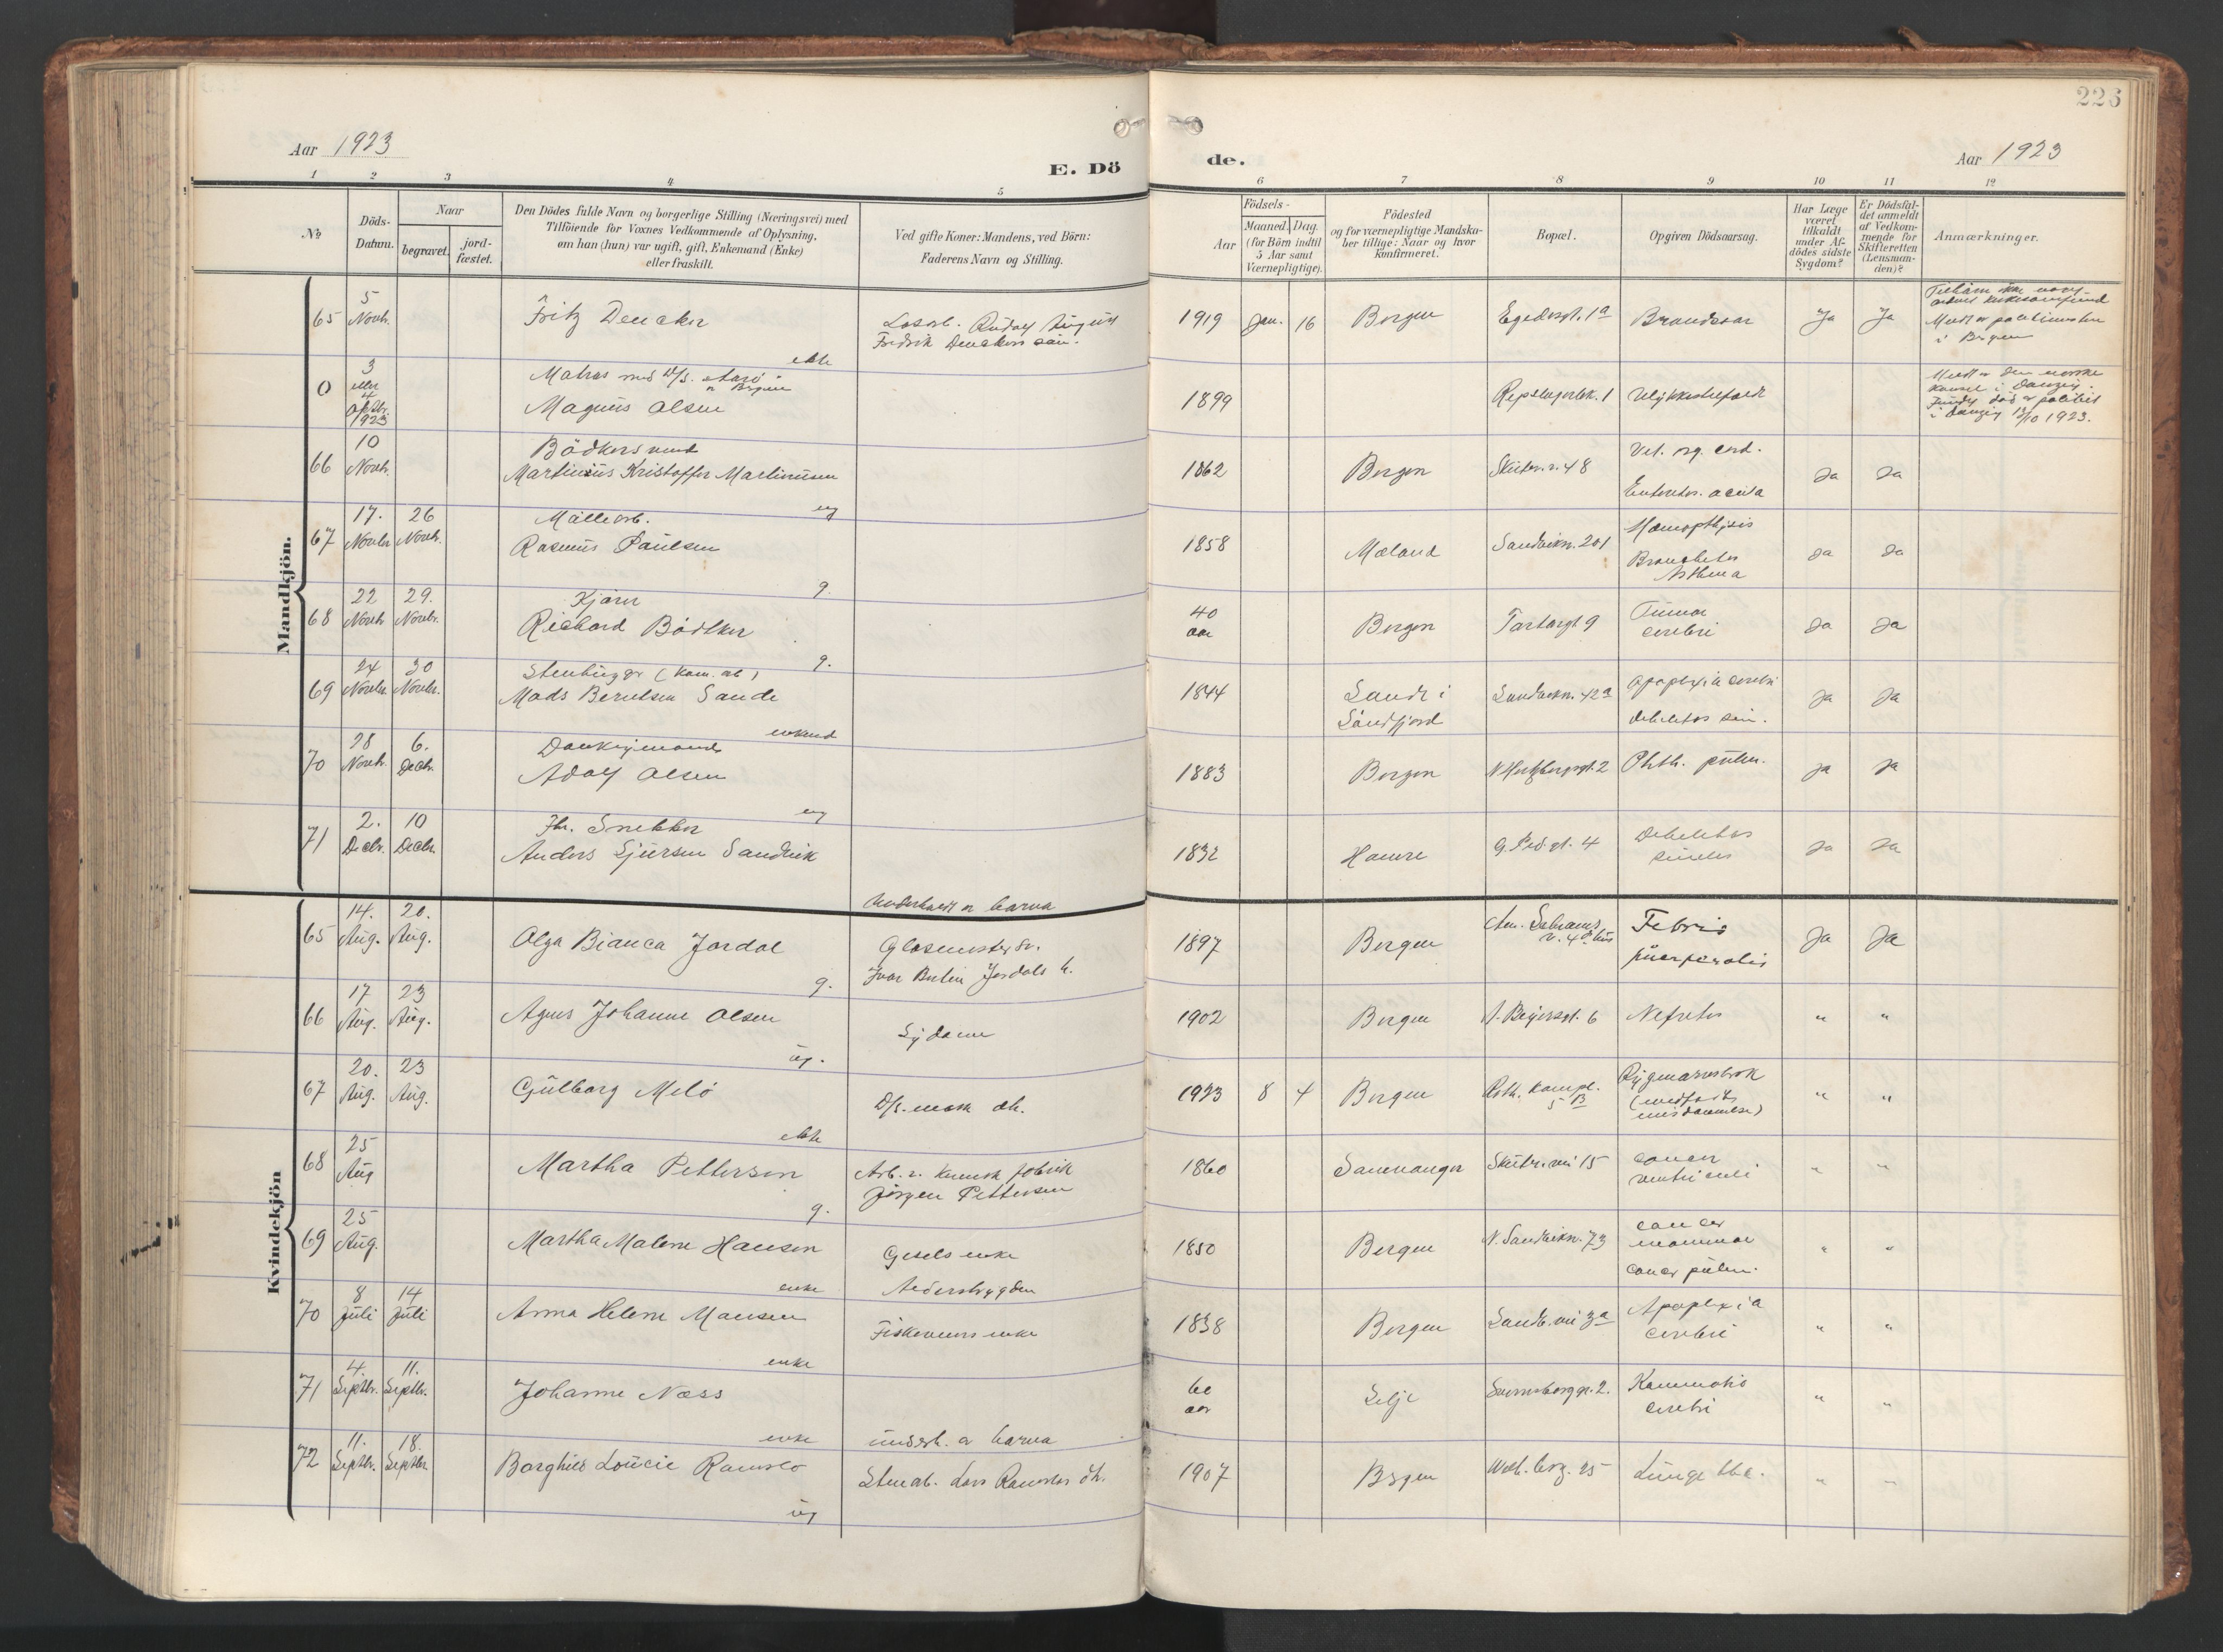 226
Aar 1923
E. Dö
de.
Aar 1923
1 2 3 4 5 6 7 8 9 10 11 12
No
Döds-
Datum.
Naar
begravet.
jord-
fæstet.
Den Dödes fulde Navn og borgerlige Stilling (Næringsvei) med
Tilföiende for Voxnes Vedkommende af Oplysning,
om han (hun) var ugift, gift, Enkemand (Enke)
eller fraskilt.
Ved gifte Koner: Mandens, ved Börn:
Faderens Navn og Stilling.
Födsels-
Aar
Maaned.
Dag.
(for Börn indtil
5 Aar samt
Værnepligtige).
Födested
og for værnepligtige Mandska-
ber tillige: Naar og hvor
Konfirmeret.
Bopæl.
Opgiven Dödsaarsag.
Har Læge
været
tilkaldt
under Af-
dödes sidste
Sygdom?
Er Dödsfal-
det anmeldt
af Vedkom-
mende for
Skifteretten
(Lensman-
den)?
Anmærkninger.
Mandkjön.
65
5
Novb.
Fritz Dencker
Fredrik Denckers sön.
ekte
1919 Jan. 16
Bergen
Egedesgt. 1a
Brandsaar
Ja
Ja
Meldt av politimesteren
i Bergen
0
3
eller
4
Oktbr.
1923
Matros med D/S.
Magnus Olsen
1899
Repslagerbk. 1
Ulykkestilfælde
Meldt av den norske
konsul i Danzig.
Fundet död av politiet
i Danzig 13/10 1923.
66
10
Novb.
Bödkersvend
Martinius Kristoffer Martinusen
ug
1862
Bergen
Skutev. v. 48
Vit. org. cord.
Enteritis acuta
Ja
Ja
67
17. 26
Novbr Novb.
Möllearb.
Rasmus Paulsen
g.
1858
Mæland
Sandviksv. 201
Hæmopthysis
Bronchitis
Asthma
Ja
Ja
68
22 29.
Novb Novbr.
Kjörer
Richard Bödtker
g.
40
aar
Bergen
Tartargt 9
Tumor
cerebri
Ja
Ja
69
24 30
Novbr. Novbr.
Stenhugger (kom. arb)
Mads Berntsen Sande
enkemd
1844
Sande i
Söndfjord
Sandviksv. 42a
Apoplexia cerebri
debilitas sen.
Ja
Ja
70
28 6.
Novb. Decbr.
Donkeymand
Adolf Olsen
ug
1883
Bergen
N Hertzbergsgt. 2
Phth. pulm.
Ja
Ja
71
2. 10
Decbr. Decbr.
Fhv. Snekker
Anders Sjursen Sandvik
1832
Hamre
Debilitas
senilis
Ja
Ja
Kvindekjön
65
14. 20.
Aug. Aug.
Olga Bianca Jordal
g.
Underholdt av barna
Glasmester
Ivar Jordals h.
1897
Bergen
Febris
puerperalis
Ja
Ja
66
17 23
Aug. Aug.
Agnes Johanne Olsen
ug.
Sydame
1902
Bergen
A. Beyersgt. 6
Nefritis
" "
67
20. 23
Aug. Aug.
Gulborg Melö
ekte
D/S. mask dt.
1923 8 4
Bergen
Roth. kampl.
5 B
Rygmarvsbrok
(medfödt
misdannelse)
" "
68
25
Aug
Martha Pettersen
g.
Arb. v. kemisk fabrik
Jörgen Pettersen
1860
Samnanger
Skutev. vei 15
cancer
ventriculi
" "
69
25
Aug.
Martha Malene Hansen
enke
Gesels enke
1850
Bergen
N. Sandviksv. 73
cancer
mammae
cancer pulm.
" "
70
8 14
Juli Juli
Anna Helene Monsen
enke
Alderstrygden
Fiskerens enke
1838
Bergen
Sandv. vei 3a
Apoplexia
cerebri
" "
71
4. 11.
Septbr. Septbr.
Johanne Næss
enke
60
aar
Selje
Sverresborg gt. 2.
Kommotio
cerebri
" "
72
11. 18.
Septbr. Septbr.
Borghild Loucie Ramslo
ug
underh. av barna
Stenarb. Lars Ramslos dt.
1907
Bergen
Lunge tbc.
" "